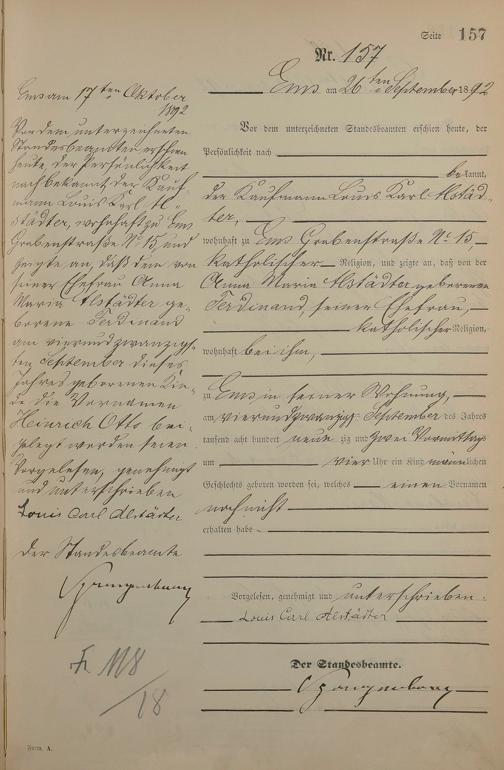 Seite 157
Nr. 157
Ems am 26ten September 1892
Vor dem unterzeichneten Standesbeamten erschien heute, der
Persönlichkeit nach
bekannt,
der Kaufmann Louis Karl Alstäd-
ter,
wohnhaft zu Ems Grabenstraße No 15,
katholischer Religion, und zeigte an, daß von der
Anna Maria Alstädter geborenen
Ferdinand, seiner Ehefrau,
katholischer Religion,
wohnhaft bei ihm,
zu Ems in seiner Wohnung,
am vierundzwanzigsten September des Jahres
tausend acht hundert neunzig und zwei Vormittags
um vier Uhr ein Kind männlichen
Geschlechts geboren worden sei, welches einen Vornamen
noch nicht
erhalten habe
Vorgelesen, genehmigt und unterschrieben
Louis Carl Alstädter
Der Standesbeamte.
Ems am 17ten Oktober
1892
Vor dem unterzeichneten
Standesbeamten erschien
heute, der Persönlichkeit
nach bekannt, der Kauf-
mann Louis Karl Al-
städter, wohnhaft zu Ems
Grabenstraße No 15, und
zeigte an, daß dem von
seiner Ehefrau Anna
Maria Alstädter ge-
borene Ferdinand
am vierundzwanzigs-
ten September dieses
Jahres geborenen Kin-
de die Vornamen
Heinrich Otto bei-
gelegt worden seien.
Vorgelesen, genehmigt
und unterschrieben
Louis Carl Alstädter
Der Standesbeamte
118
/18
Form. A.